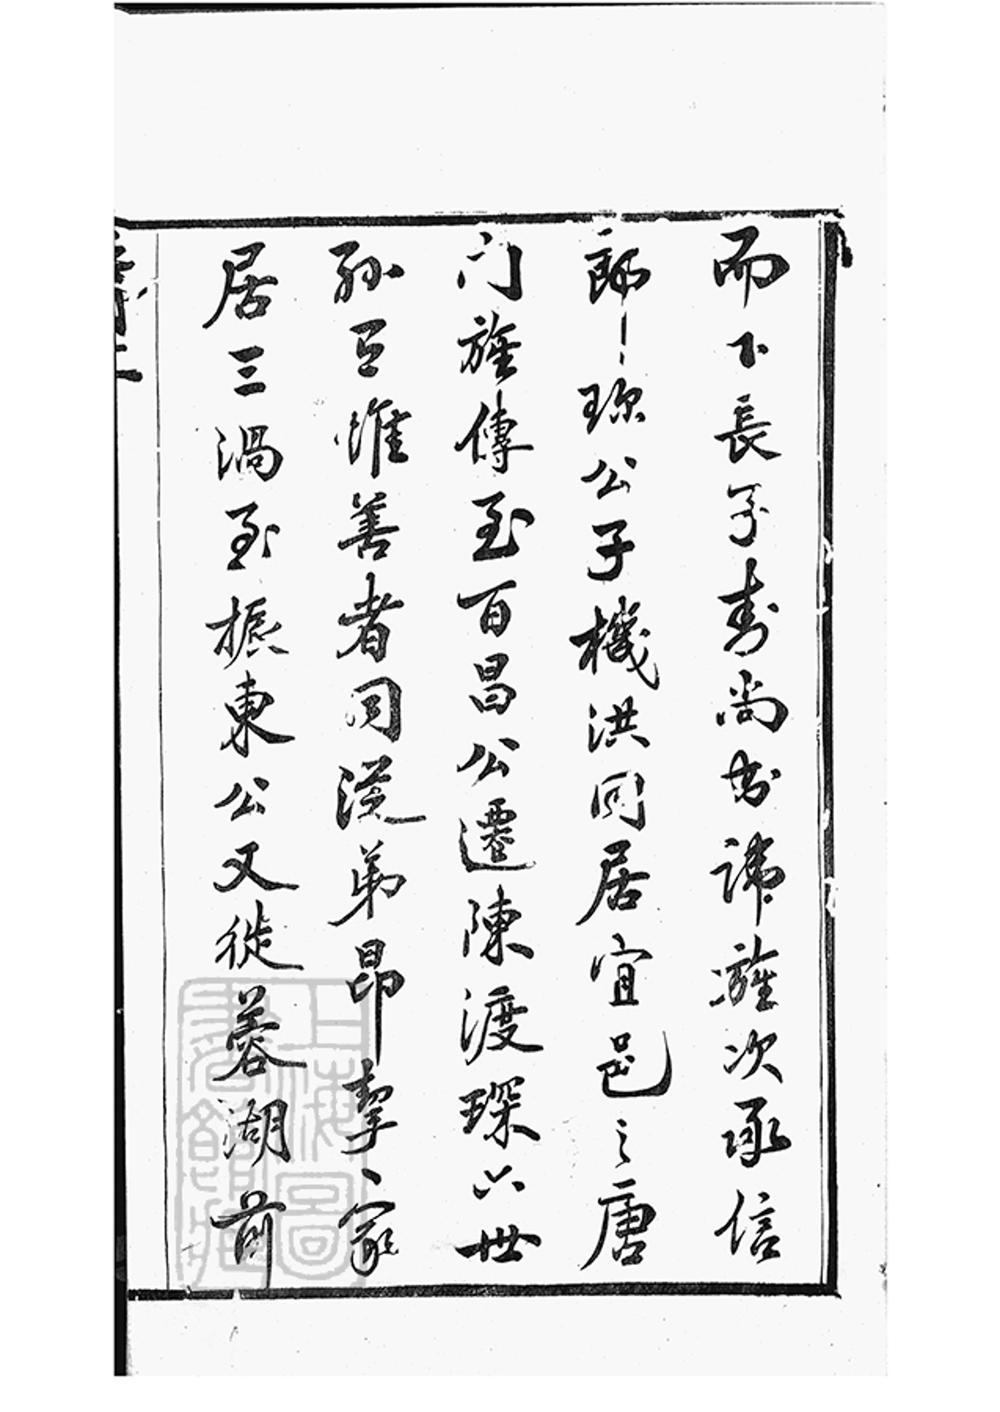 而下長子壽尚書諱旌次承信
郎琛公子機洪同居宜邑之唐
门旌傳至百昌公遷陳渡琛六世
孫曰惟善者同從弟昂挈家
居三渦至振東公又徙蓉湖前
上海圖書館藏